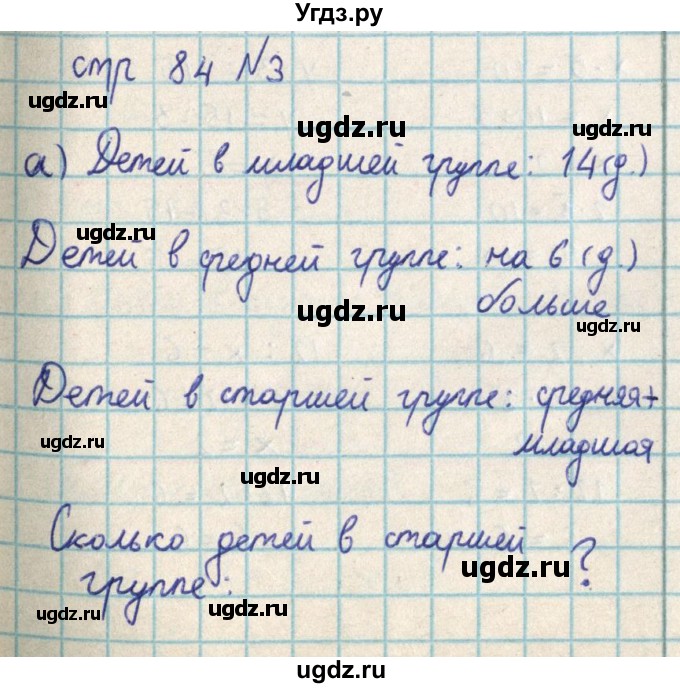 Угдз.ру
стр 84 №3
ugdz.ru
ugdz.ru
ugdz.ru
а) Детей в младшей группе: 14 (д.)
ugdz.ru
Детей в средней группе: на 6 (д.)
больше
ugdz.ru
ugdz.ru
Детей в старшей группе: средняя+
младшая
ugdz.ru
ugdz.ru
Сколько детей в старшей
группе: ?
ugdz.ru
ugdz.ru
ugdz.ru
ugdz.ru